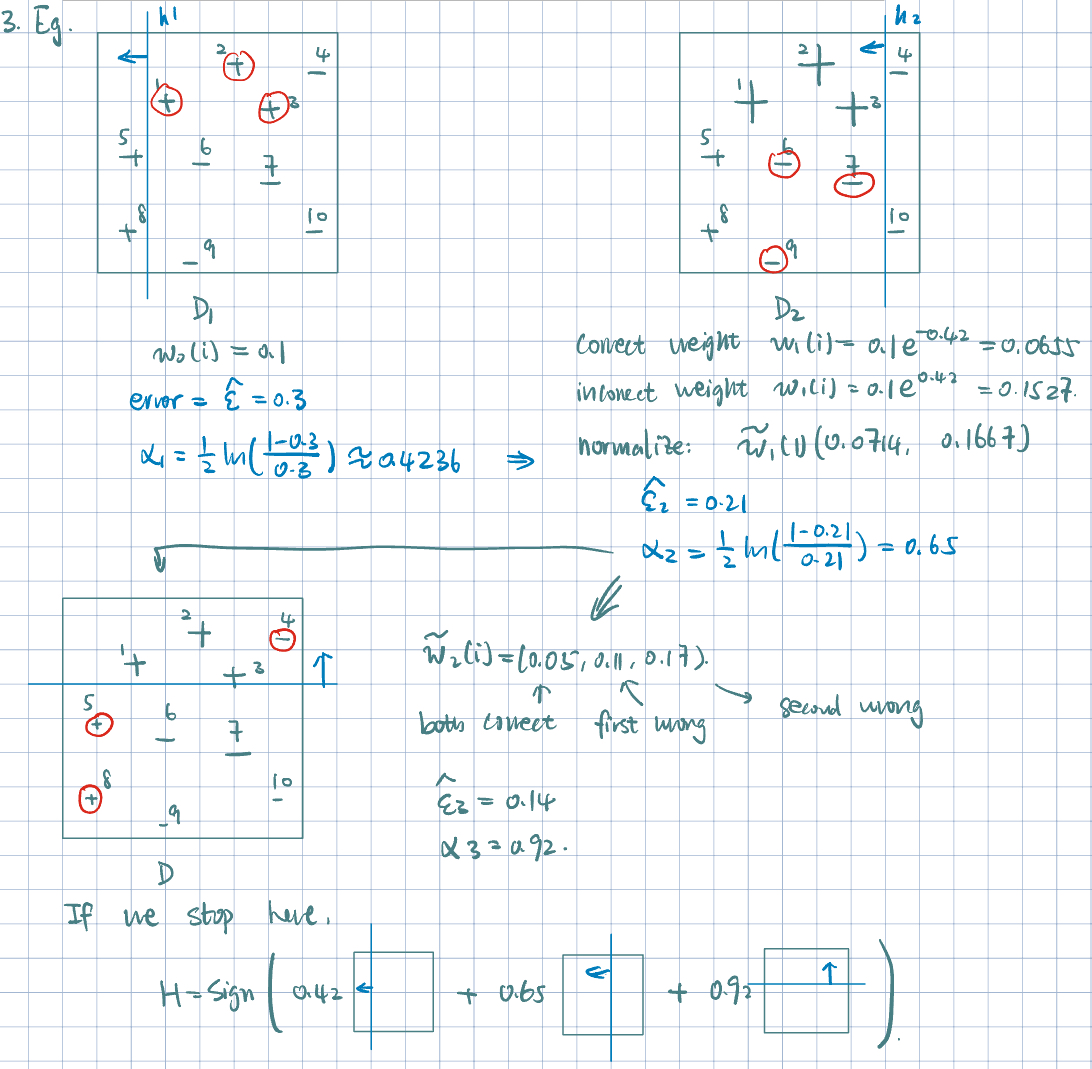 3. Eg.
h1
2 +
4 −
1 +
+ 3
5 +
6 −
7 −
+ 8
10 −
− 9
D₁
w₀(i) = 0.1
error = ε̂ = 0.3
α₁ = ½ ln(1-0.3 / 0.3) ≈ 0.4236 ⇒
h2
2 +
4 −
1 +
+ 3
5 +
6 −
7 −
+ 8
10 −
− 9
D₂
correct weight w₁(i) = 0.1e^-0.42 = 0.0655
incorrect weight w₁(i) = 0.1e^0.42 = 0.1527.
normalize: w̃₁(i) (0.0714, 0.1667)
ε̂₂ = 0.21
α₂ = ½ ln(1-0.21 / 0.21) = 0.65
2 +
4 −
1 +
+ 3
5 +
6 −
7 −
+ 8
10 −
− 9
D
w̃₂(i) = (0.05, 0.11, 0.17).
both correct first wrong second wrong
ε̂₃ = 0.14
α3 = 0.92.
If we stop here,
H = Sign ( 0.42 + 0.65 + 0.92 ).